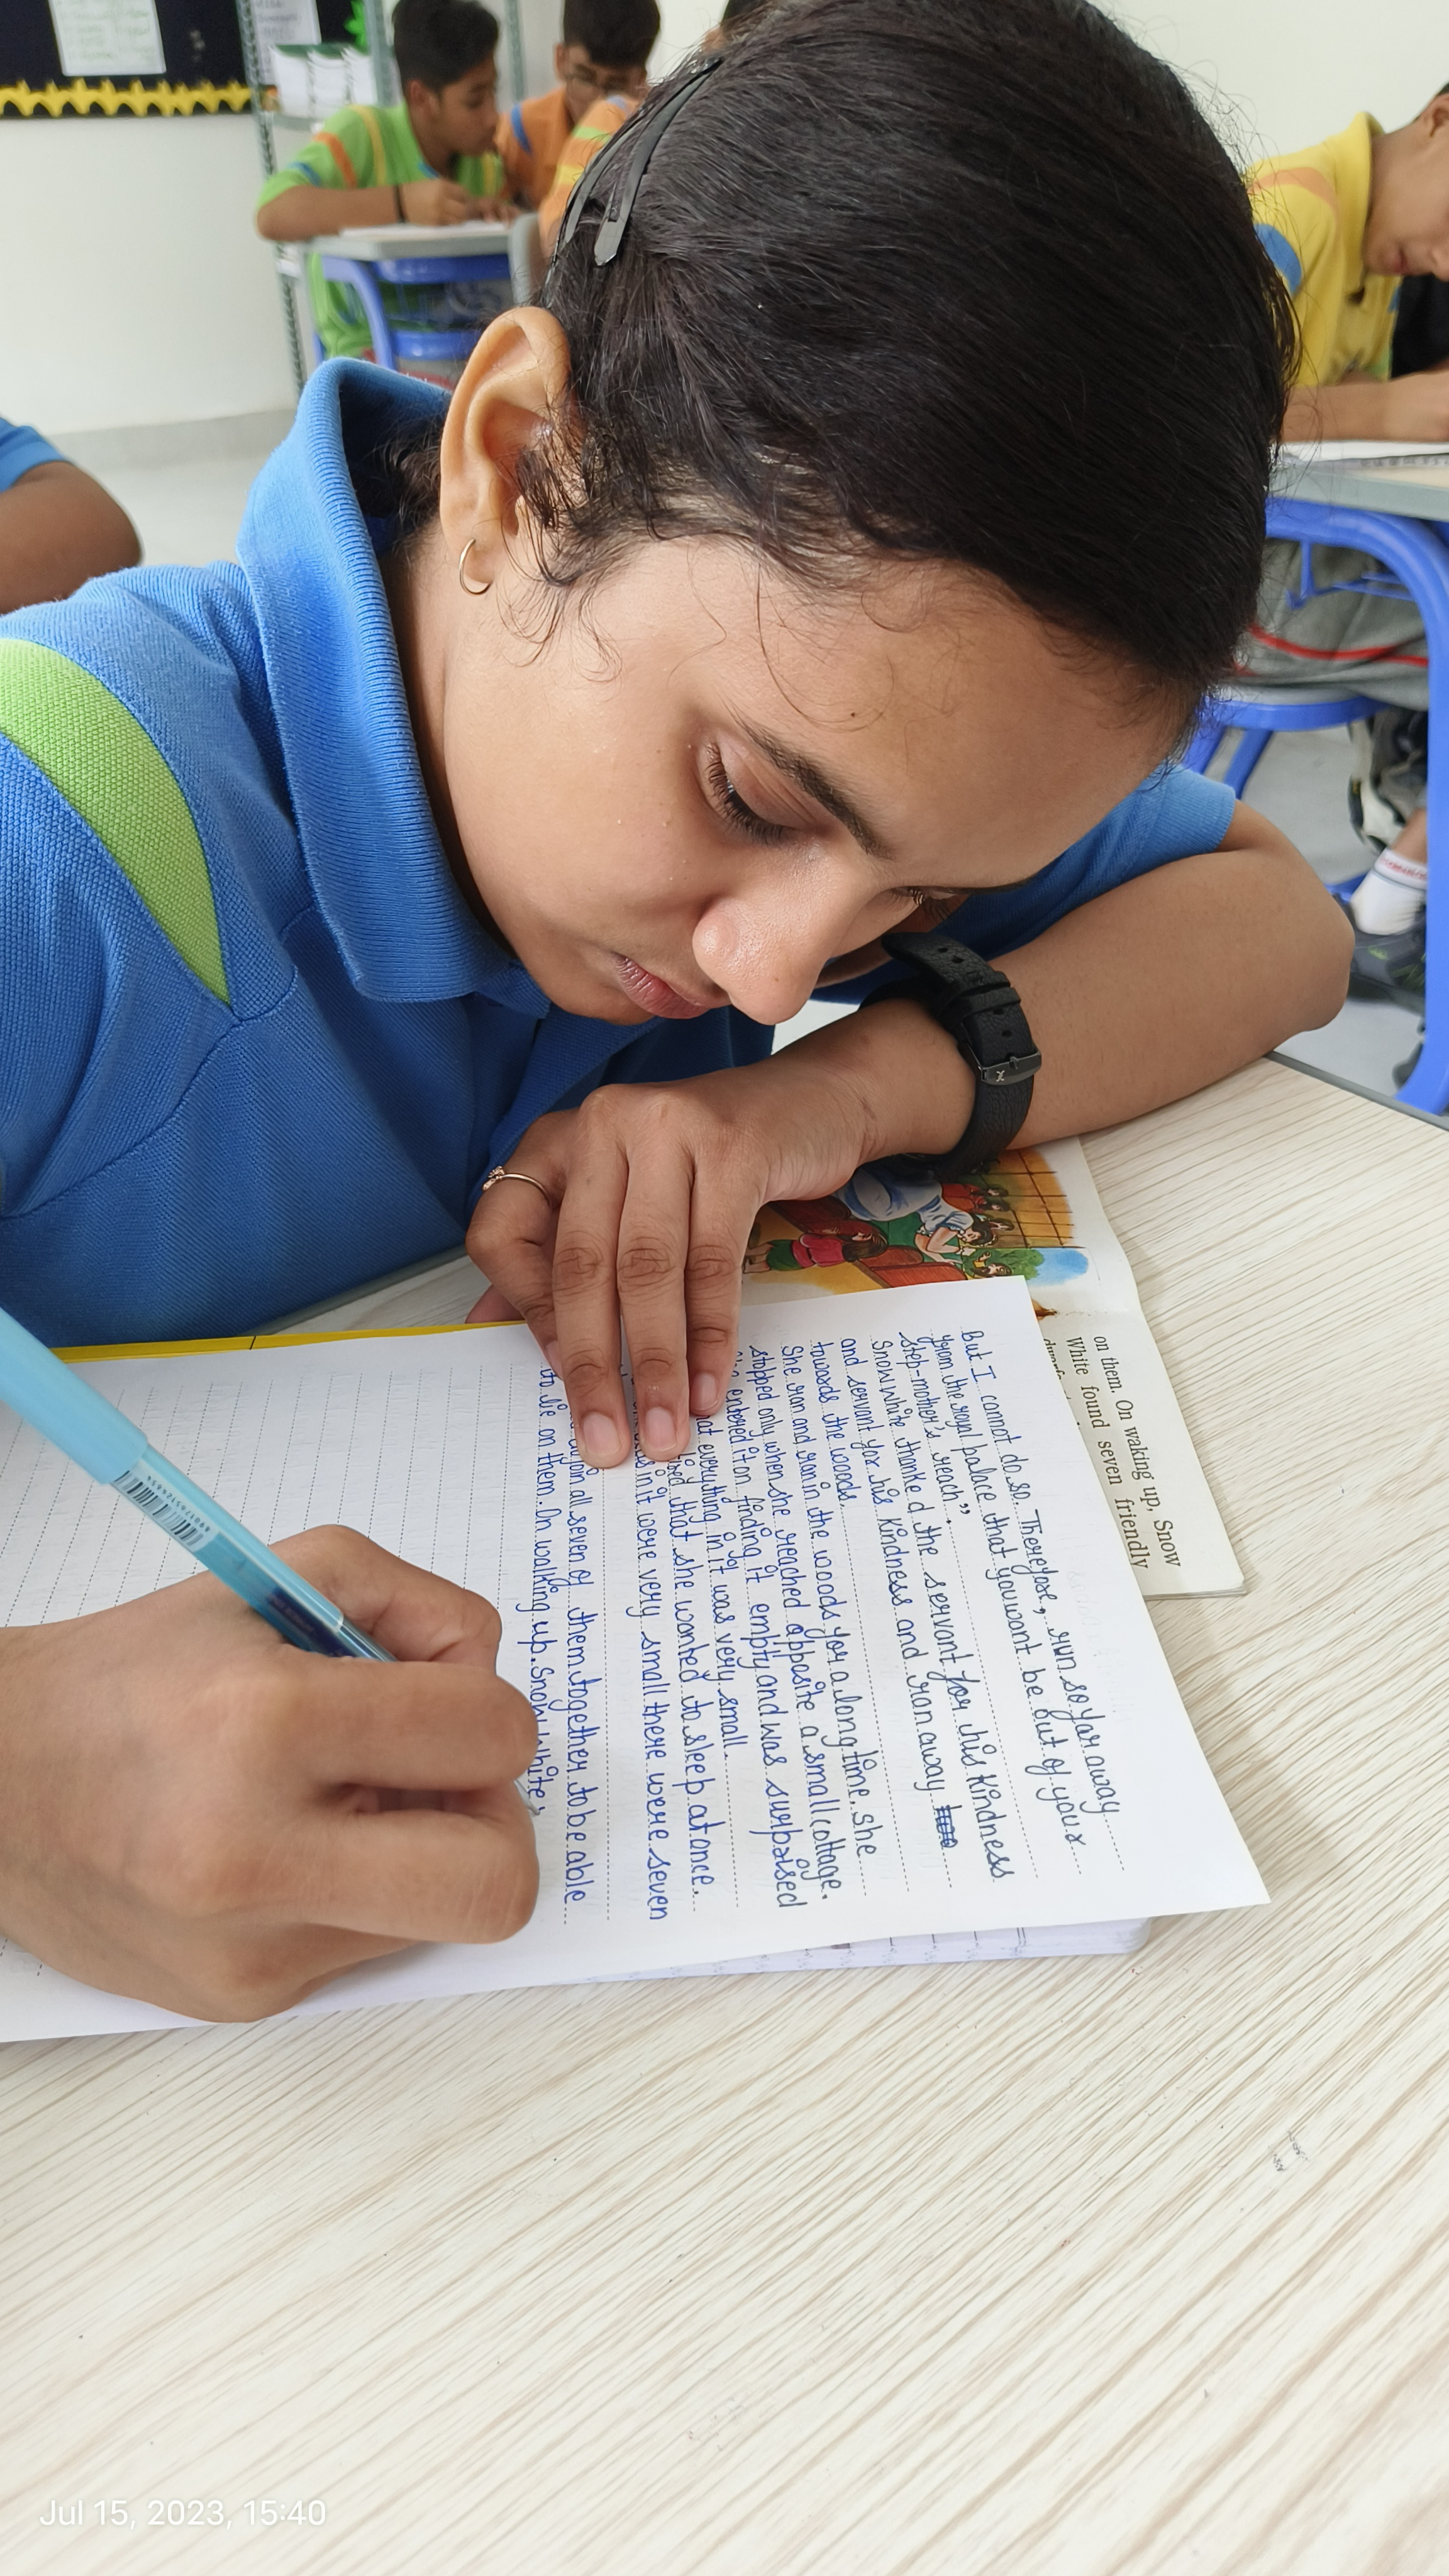 But I cannot do so. Therefore, run so far away
from the royal palace that you want be but of your
step-mother's reach".
Snow white thanked the servant for his kindness
and servant for his kindness and ran away
towards the woods.
She ran and ran in the woods for a long time. She
stopped only when she reached opposite a small cottage.
entered it on finding it empty and was surpised
that everything in it was very small.
that she wanted to sleep at once.
in it were very small there were seven
all seven of them together to be able
to lie on them. On walking up. Snow White,
on them. On waking up, Snow
White found seven friendly
Jul 15, 2023, 15:40